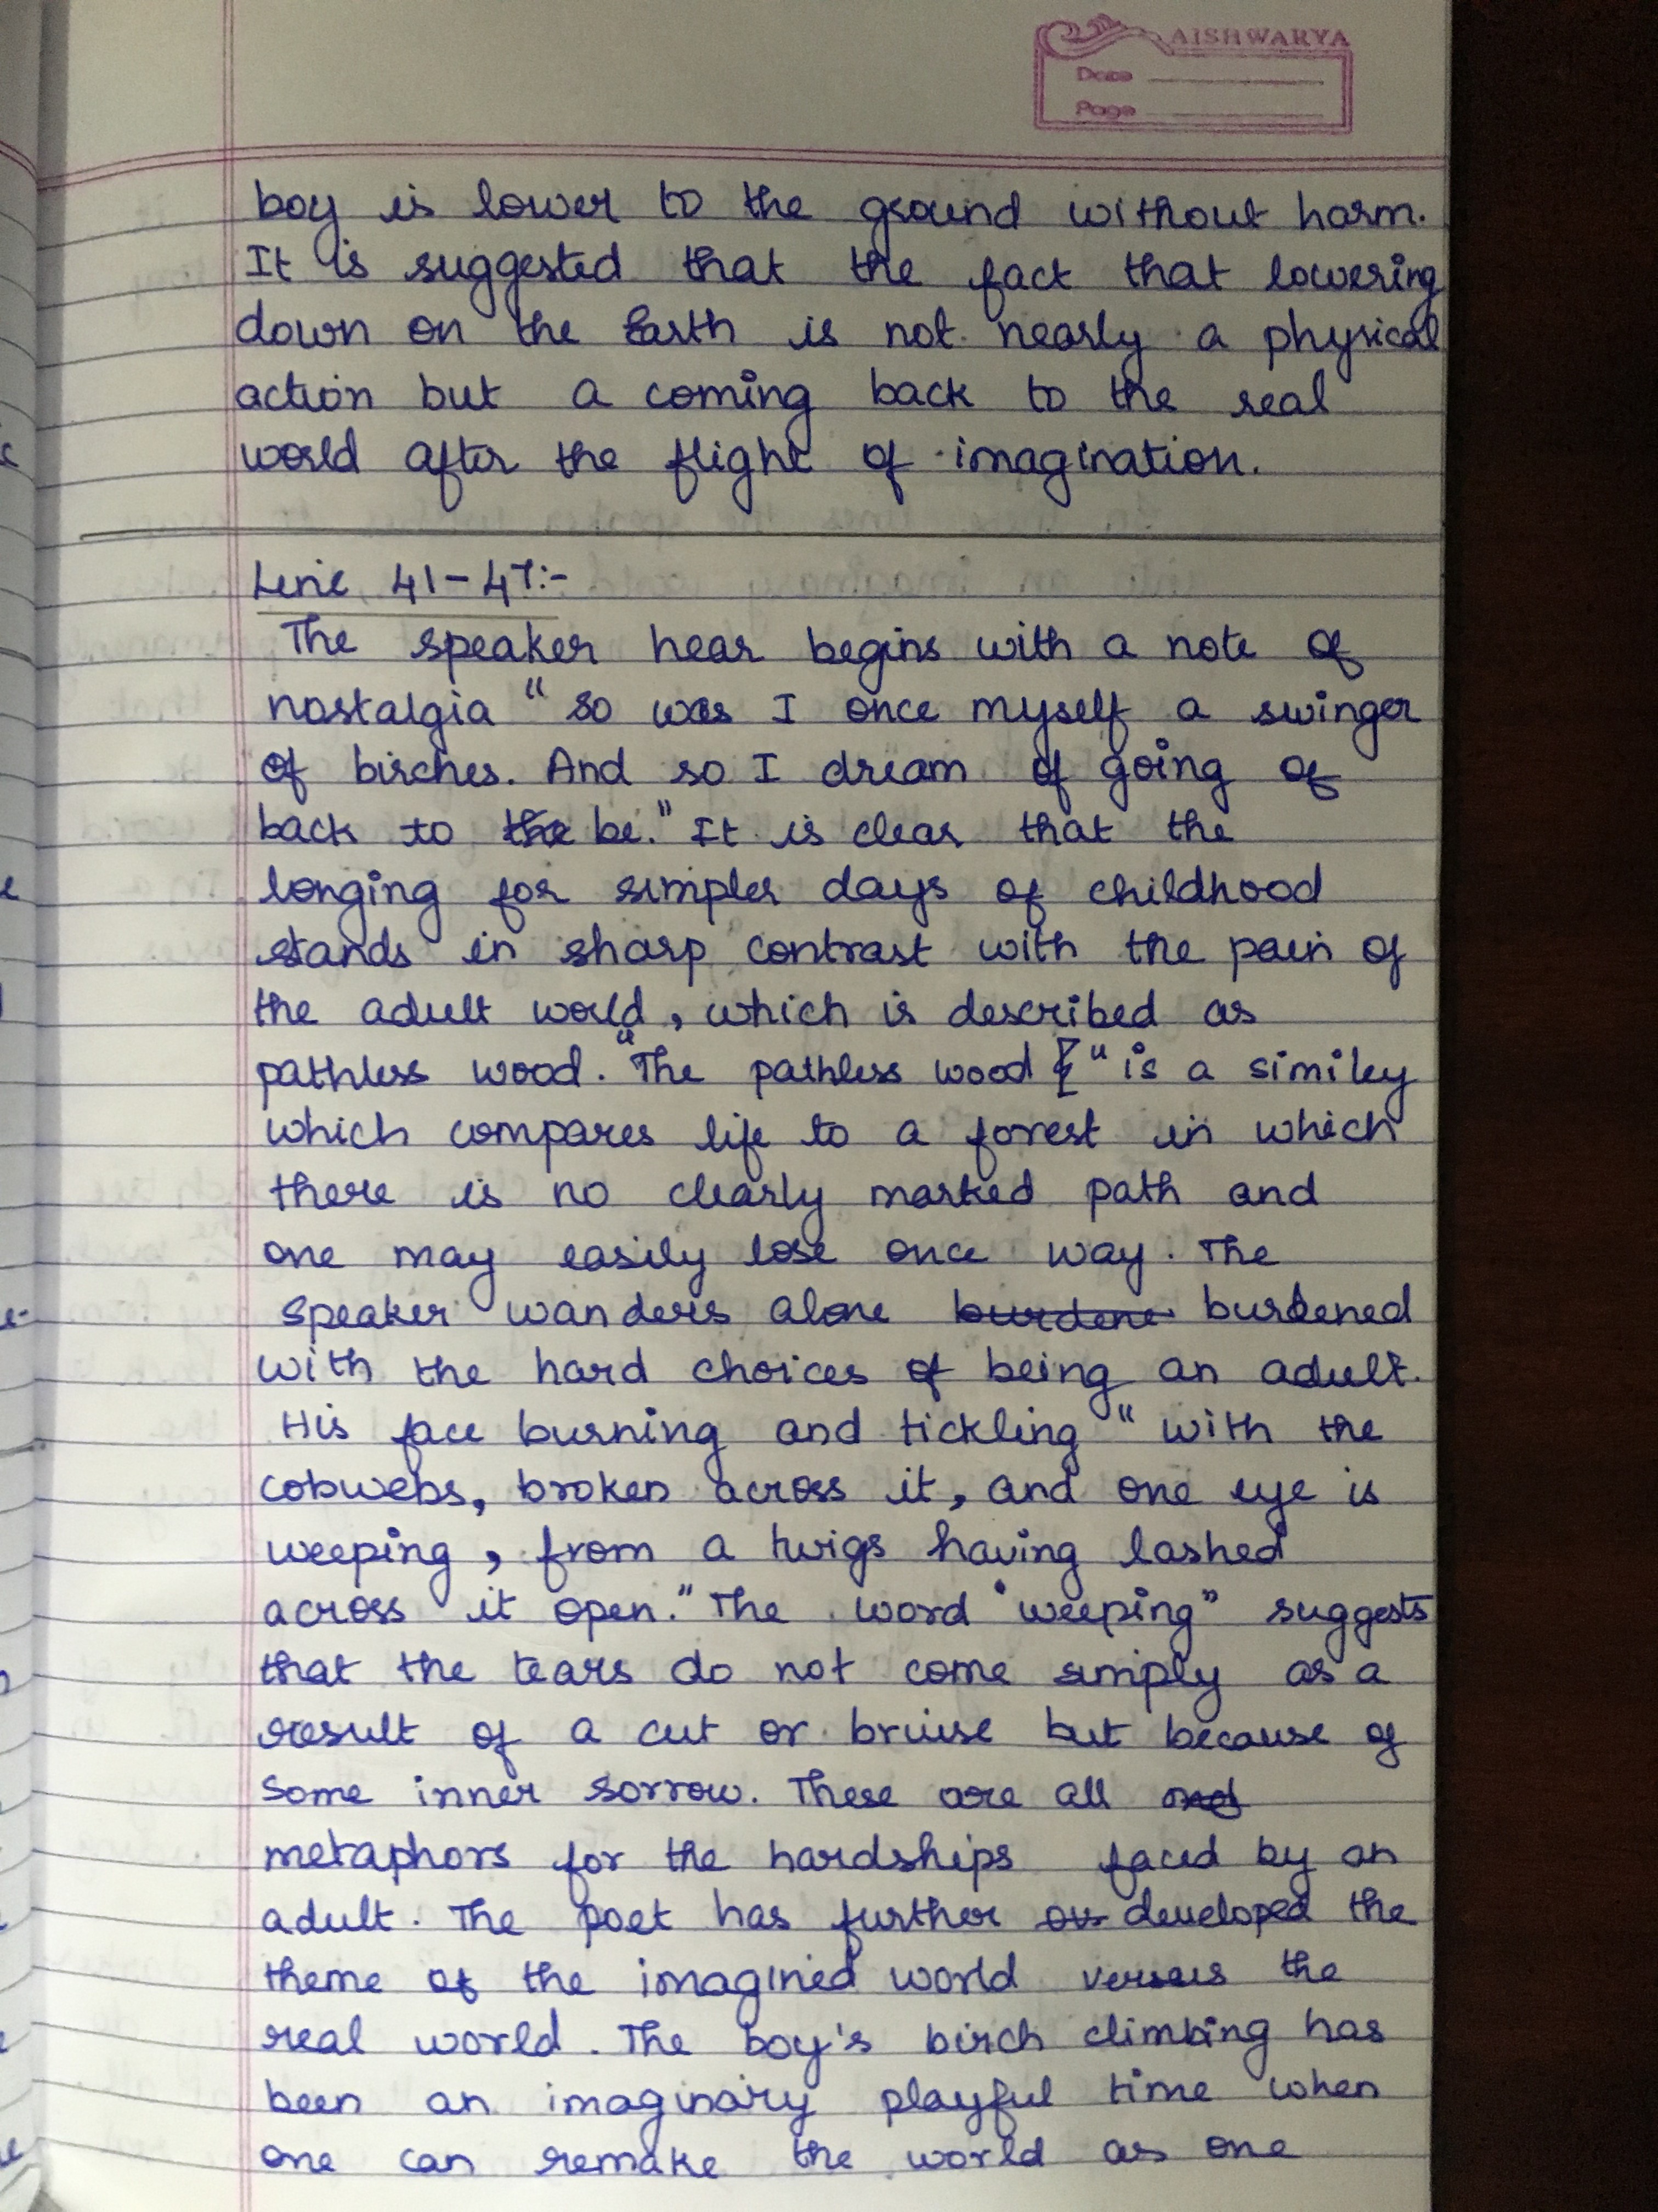 AISHWARYA
Date
Page
boy is lower to the ground without harm.
It is suggested that the fact that lowering
down on the Earth is not nearly a physical
action but a coming back to the real
world after the flight of imagination.
Line 41-47:-
The speaker hear begins with a note of
nostalgia "so was I once myself a swinger
of birches. And so I dream of going of
back to the be." It is clear that the
longing for simpler days of childhood
stands in sharp contrast with the pain of
the adult world, which is described as
pathless wood. "The pathless wood" is a similey
which compares life to a forrest in which
there is no clearly marked path and
one may easily lose once way. The
speaker wanders alone burdene burdened
with the hard choices of being an adult.
His face burning and tickling "with the
cobwebs, broken across it, and one eye is
weeping, from a twigs having lashed
across it open." The word "weeping" suggests
that the tears do not come simply as a
result of a cut or bruise but because of
some inner sorrow. These are all
metaphors for the hardships faced by an
adult. The poet has further developed the
theme of the imagined world versus the
real world. The boy's birch climbing has
been an imaginary playful time when
one can remake the world as one